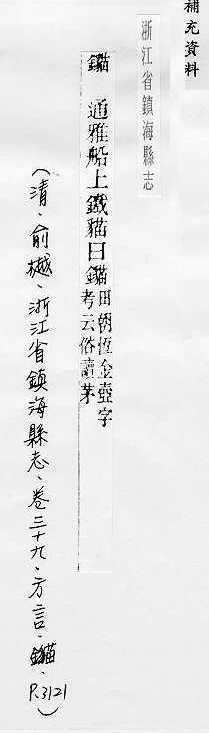 補充資料
浙江省鎮海縣志
鑼 通雅船上鐵貓曰錨田朝恆金壺字
考云俗讀茅
(清．俞樾．浙江省鎮海縣志．卷三十九．方言．錨．
P.3121)